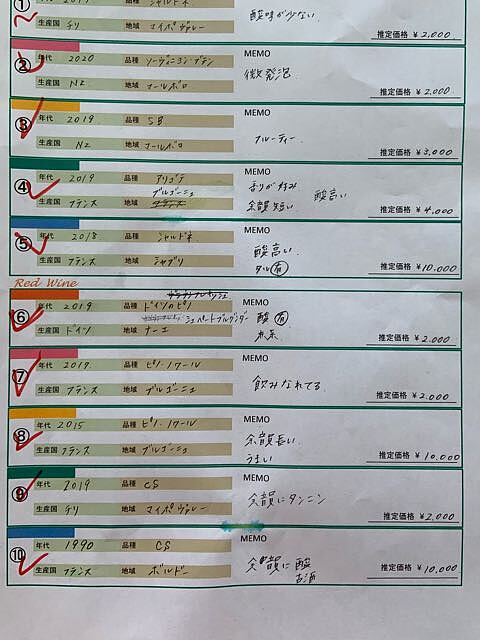 ①
シャルドネ
生産国 チリ 地域 マイポヴァレー
酸味が少ない
推定価格 ¥2,000
② 年代 2020 品種 ソーヴィニヨン・ブラン
MEMO
生産国 NZ 地域 マールボロ
微発泡
推定価格 ¥2,000
③ 年代 2019 品種 SB
MEMO
生産国 NZ 地域 マールボロ
フルーティー
推定価格 ¥3,000
④ 年代 2019 品種 アリゴテ
MEMO
生産国 フランス 地域 ブルゴーニュ
香りが好み 酸高い
余韻短い
推定価格 ¥4,000
⑤ 年代 2018 品種 シャルドネ
MEMO
生産国 フランス 地域 シャブリ
酸高い
タル有
推定価格 ¥10,000
Red Wine
⑥ 年代 2019 品種 ドイツのピノ
シュペートブルグンダー
MEMO
生産国 ドイツ 地域 ナーエ
酸有
推定価格 ¥2,000
⑦ 年代 2019 品種 ピノ・ノワール
MEMO
生産国 フランス 地域 ブルゴーニュ
飲みなれてる
推定価格 ¥2,000
⑧ 年代 2015 品種 ピノ・ノワール
MEMO
生産国 フランス 地域 ブルゴーニュ
余韻長い
うまい
推定価格 ¥10,000
⑨ 年代 2019 品種 CS
MEMO
生産国 チリ 地域 マイポヴァレー
余韻にタンニン
推定価格 ¥2,000
⑩ 年代 1990 品種 CS
MEMO
生産国 フランス 地域 ボルドー
余韻に酸
古酒
推定価格 ¥10,000